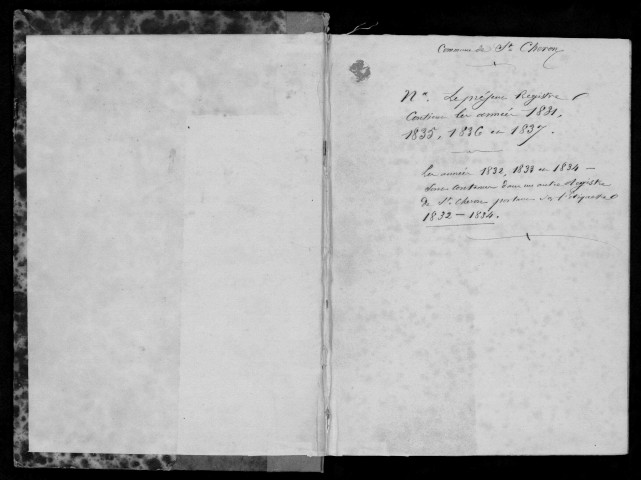 Commune de St Cheron
Na. Le présent Registre
Contient les années 1831,
1835, 1836 et 1837.
Les années 1832, 1833 et 1834 —
sont contenues dans un autre Registre
de St Cheron portant
1832 — 1834.